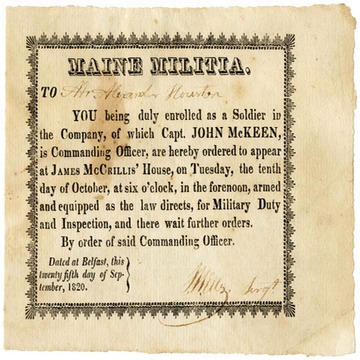 MAINE MILITIA.
TO Mr. Alexander Houston
YOU being duly enrolled as a Soldier in
the Company, of which Capt. JOHN McKEEN,
is Commanding Officer, are hereby ordered to appear
at JAMES McCRILLIS' House, on Tuesday, the tenth
day of October, at six o'clock, in the forenoon, armed
and equipped as the law directs, for Military Duty
and Inspection, and there wait further orders.
By order of said Commanding Officer.
Dated at Belfast, this
twenty fifth day of Sep-
tember, 1820.
Sergt